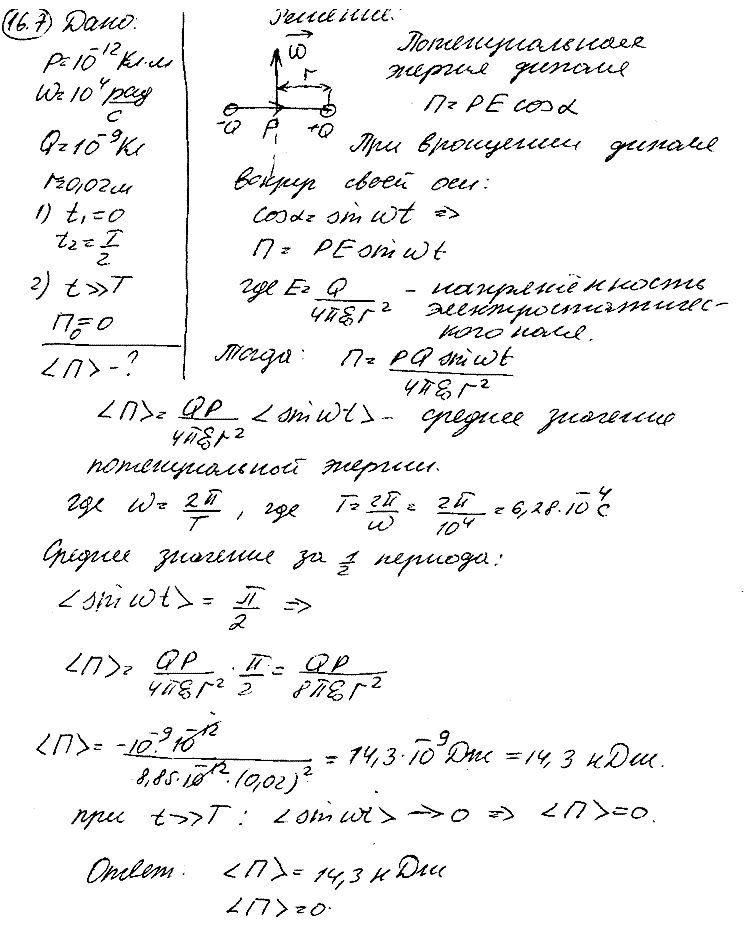 16.7 Дано:
P=10⁻¹² Кл·м
ω=10⁴ рад/с
Q=10⁻⁹ Кл
r=0,02м
1) t₁=0
t₂=T/2
2) t>>T
П₀=0
<П>-?
Решение:
ω
r
-Q P +Q
Потенциальная
энергия диполя
П=PE cosα
При вращении диполя
вокруг своей оси:
cosα=sinωt =>
П= PEsinωt
где E=Q/4πε₀r² - напряжённость
электростатичес-
кого поля.
Тогда: П=PQ sinωt/4πε₀r²
<П>=QP/4πε₀r² <sinωt> - среднее значение
потенциальной энергии.
где ω=2π/T, где T=2π/ω=2π/10⁴=6,28·10⁻⁴с
Среднее значение за 1/2 периода:
<sinωt>=π/2 =>
<П>=QP/4πε₀r²·π/2=QP/8πε₀r²
<П>=-10⁻⁹·10⁻¹²/8,85·10⁻¹²·(0,02)²=14,3·10⁻⁹Дж=14,3 нДж.
при t>>T: <sinωt>→0 => <П>=0.
Ответ: <П>=14,3 нДж
<П>=0.